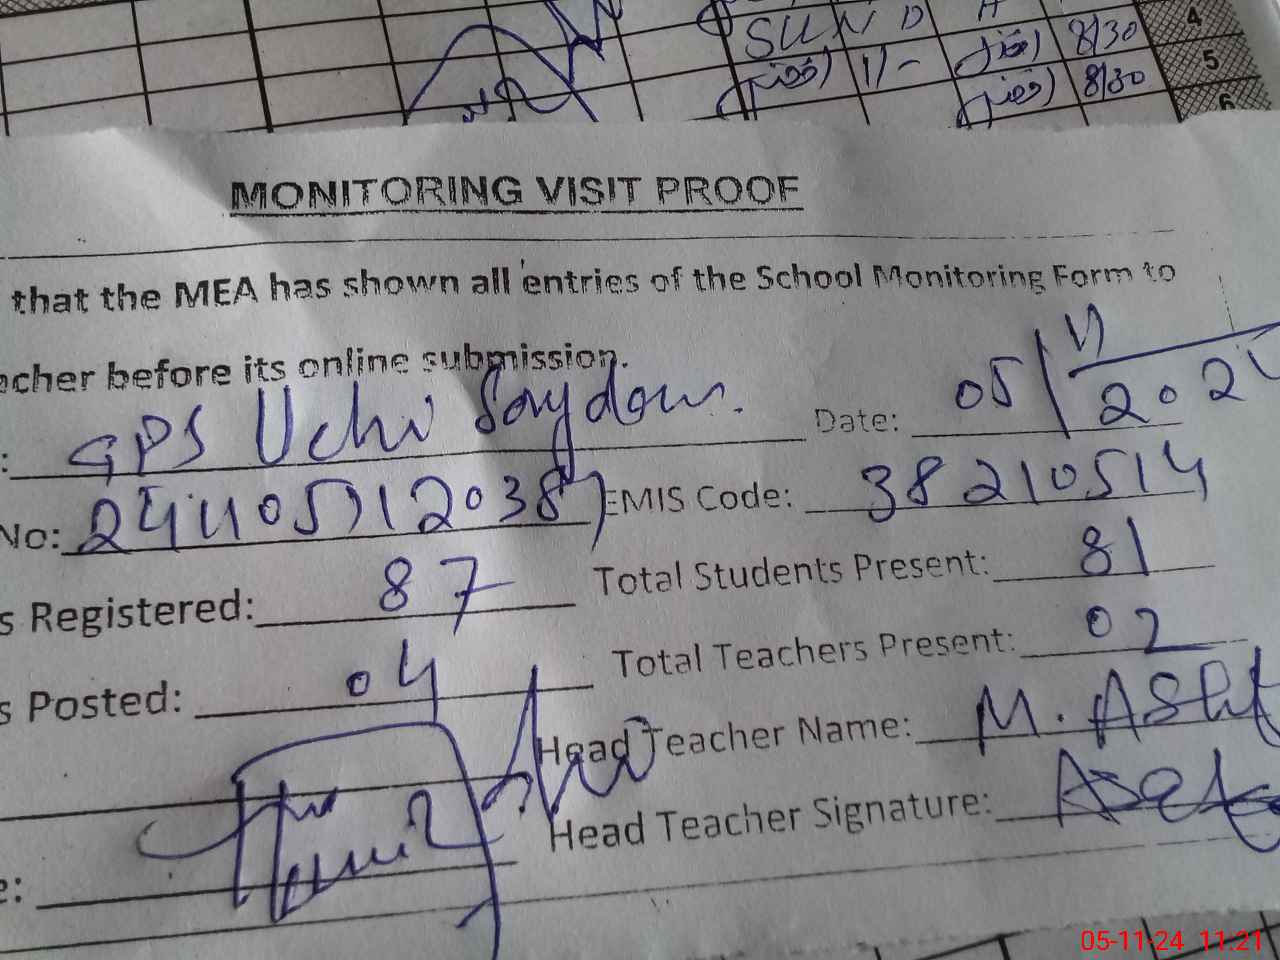 SUN D A 4
8/30 5
1/- 8/30 6
MONITORING VISIT PROOF
that the MEA has shown all entries of the School Monitoring Form to
acher before its online submission.
: GPS Uchi Saydan. Date: 05/11/202
No: EMIS Code: 38210514
s Registered: 87 Total Students Present: 81
s Posted: 04 Total Teachers Present: 02
Head Teacher Name: M. Ashf
Head Teacher Signature:
e:
05-11-24 11:21